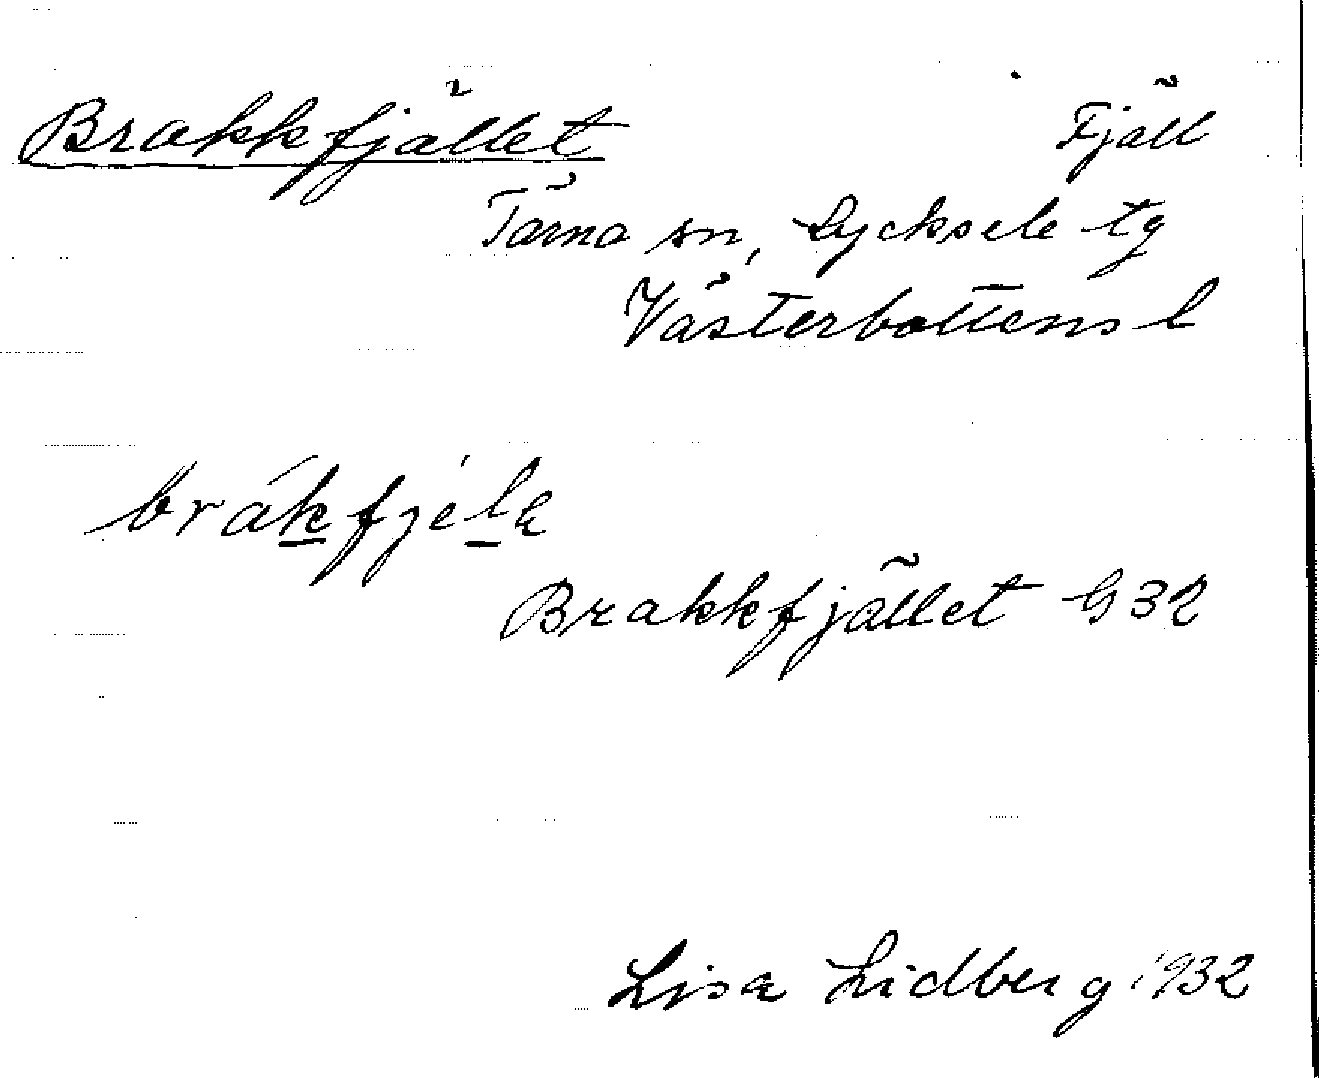 Brakkfjället Fjäll
Tärna sn, Lycksele tg
Västerbottens l
brák̲fjél̲a
Brakkfjället G 32
Lisa Lidberg 1932